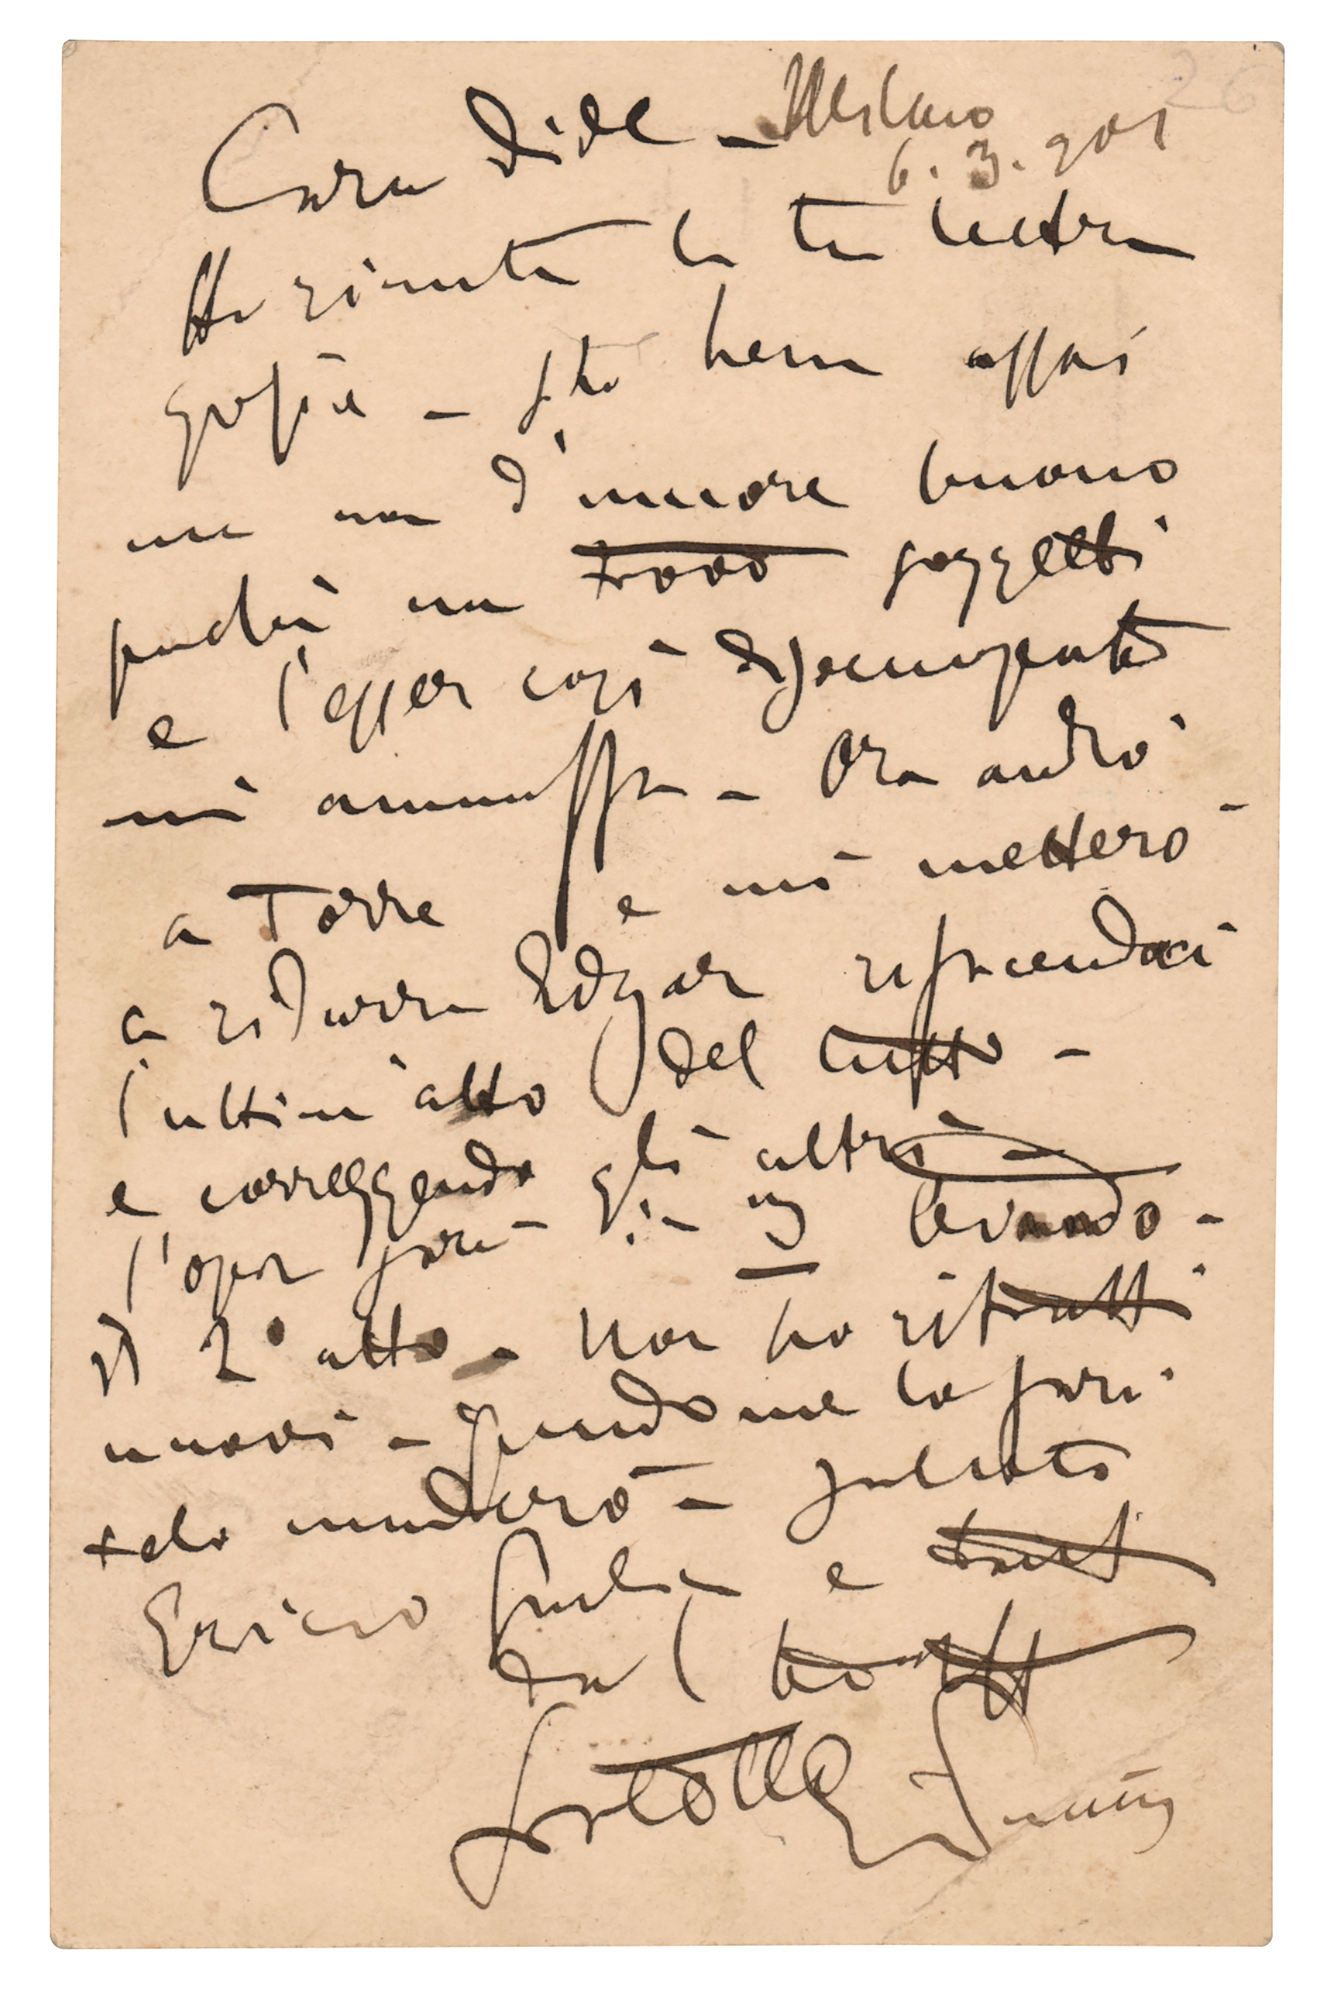 Cara Dide - Milano
6. 3. 901
Ho ricevuta la tua lettera
grazie - Sto bene assai
ma non d'umore buono
perchè non trovo soggetti
e l'esser così disoccupato
mi ammuffa - Ora andrò
a Torre e mi metterò -
a ridurre Edgar rifacendoci
l'ultim'atto del tutto -
e correggendo gli altri -
l'opera sarà in 3 levando -
il 2º atto - Non ho ritratti
nuovi - quando me lo farò
telo manderò - Salutata
Enrico Giulia e
dal
fratello Giacomo